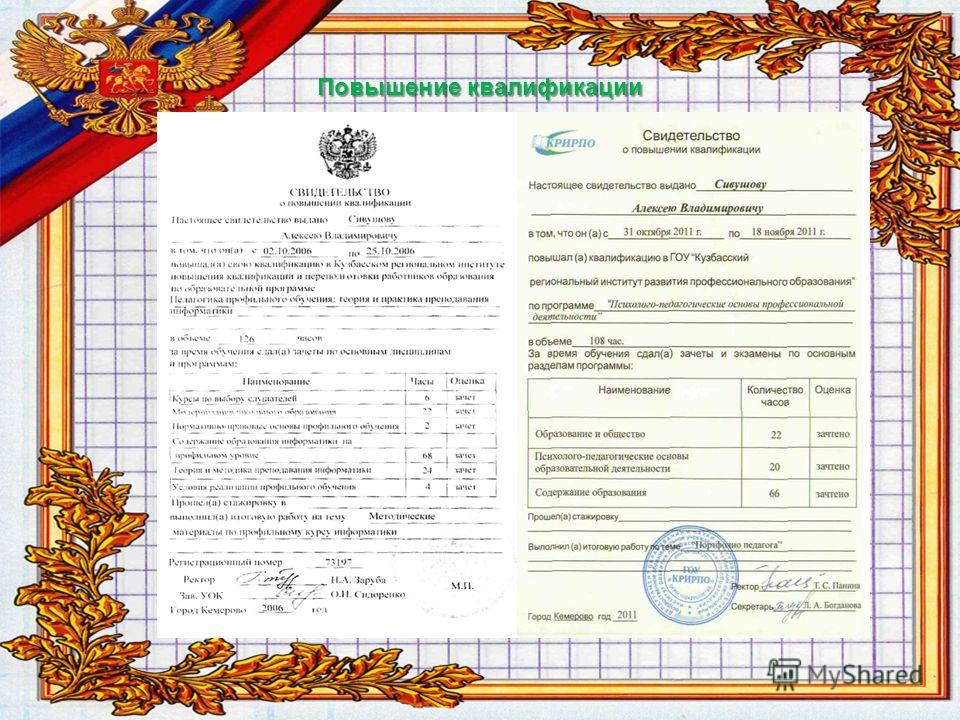 Повышение квалификации
СВИДЕТЕЛЬСТВО
о повышении квалификации
Настоящее свидетельство выдано Сивушову
Алексею Владимировичу
в том, что он(а) с 02.10.2006 по 25.10.2006
повышал(а) свою квалификацию в Кузбасском региональном институте
повышения квалификации и переподготовки работников образования
по образовательной программе
Педагогика профильного обучения: теория и практика преподавания
информатики
в объеме 126 часов
за время обучения сдал(а) зачеты по основным дисциплинам
и программам:
Наименование Часы Оценка
Курсы по выбору слушателей 6 зачет
Модернизация школьного образования 22 зачет
Нормативно-правовые основы профильного обучения 2 зачет
Содержание образования информатики на
профильном уровне 68 зачет
Теория и методика преподавания информатики 24 зачет
Условия реализации профильного обучения 4 зачет
Прошел(а) стажировку в
выполнил(а) итоговую работу на тему Методические
материалы по профильному курсу информатики
Регистрационный номер 73197
Ректор Н.А. Заруба
Зав. УОК О.И. Сидоренко
М.П.
Город Кемерово 2006 год
КРИРПО
Свидетельство
о повышении квалификации
Настоящее свидетельство выдано Сивушову
Алексею Владимировичу
в том, что он (а) с 31 октября 2011 г. по 18 ноября 2011 г.
повышал (а) квалификацию в ГОУ "Кузбасский
региональный институт развития профессионального образования"
по программе "Психолого-педагогические основы профессиональной
деятельности"
в объеме 108 час.
За время обучения сдал(а) зачеты и экзамены по основным
разделам программы:
Наименование Количество часов Оценка
Образование и общество 22 зачтено
Психолого-педагогические основы
образовательной деятельности 20 зачтено
Содержание образования 66 зачтено
Прошел(а) стажировку
Выполнил (а) итоговую работу по теме "Портфолио педагога"
ГОУ
"КРИРПО"
Ректор Т. С. Панина
Секретарь Л. А. Богданова
Город Кемерово год 2011
MyShared